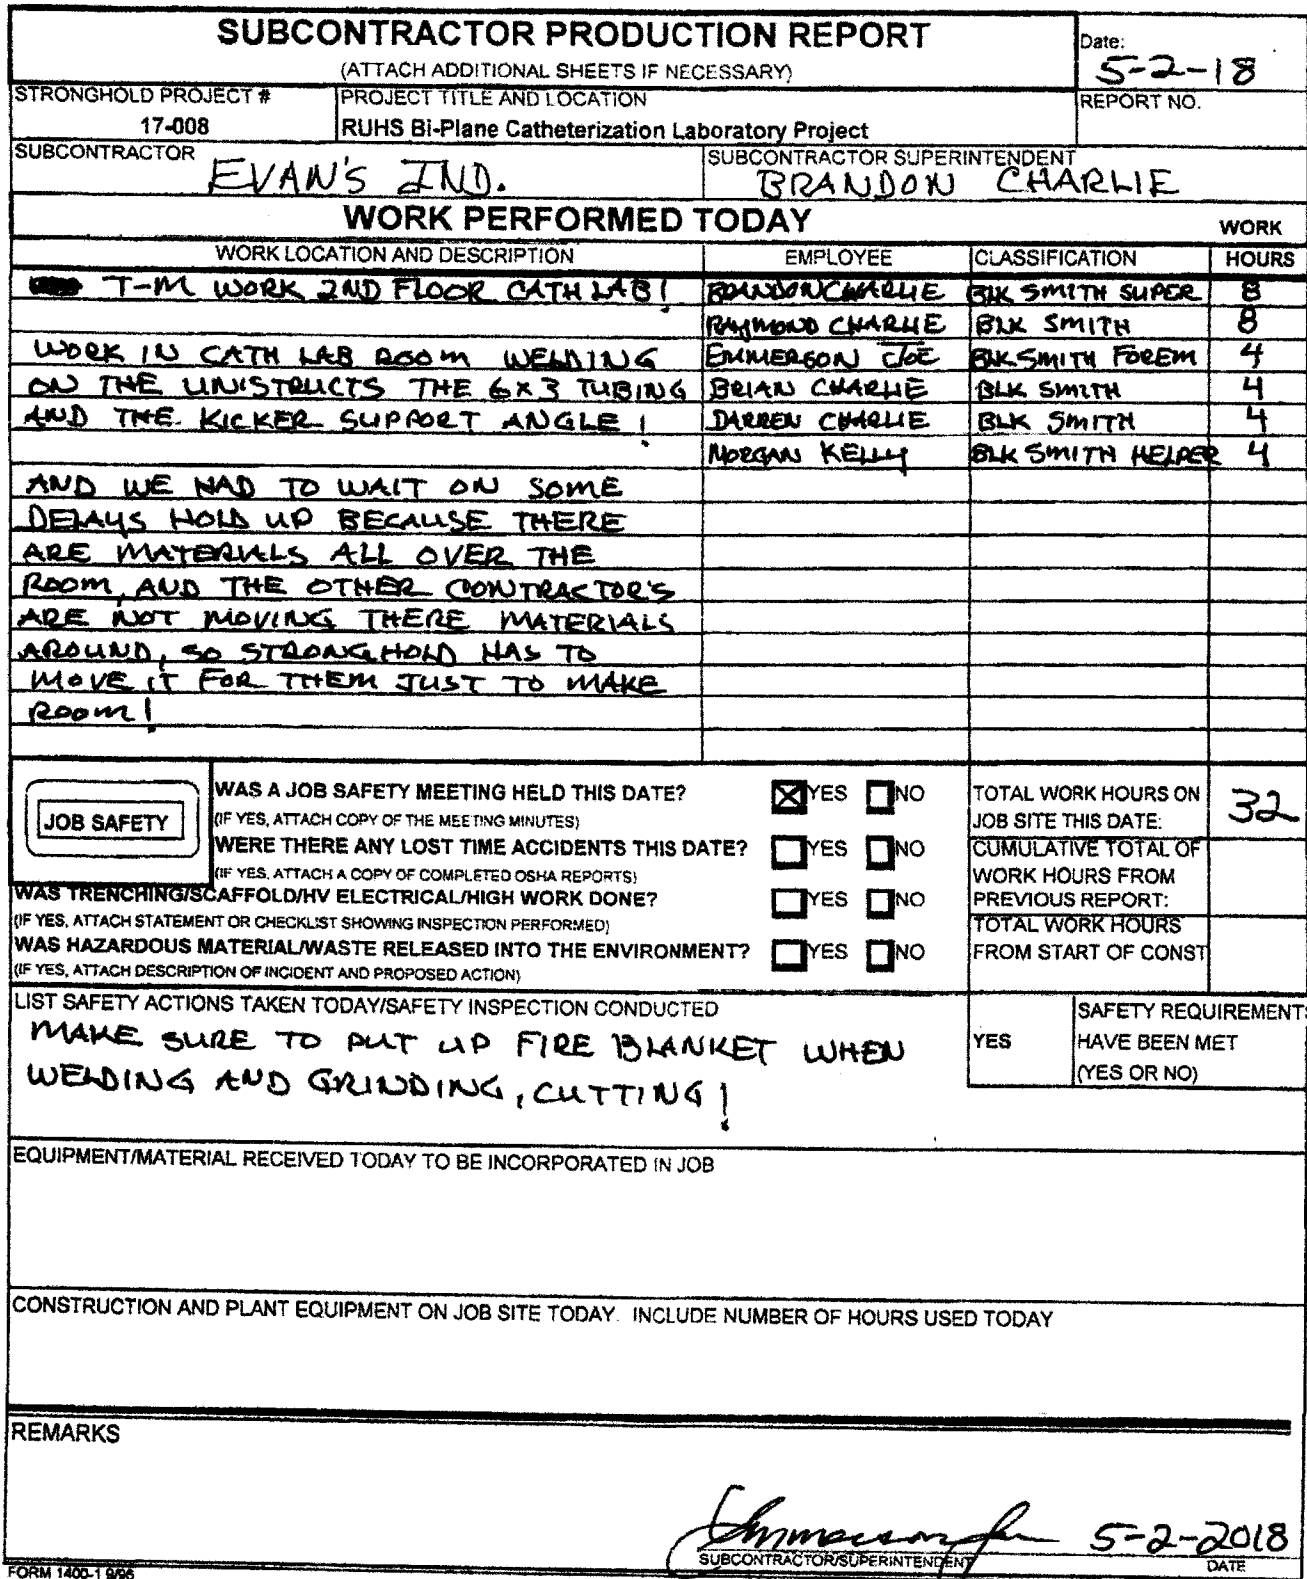 SUBCONTRACTOR PRODUCTION REPORT
(ATTACH ADDITIONAL SHEETS IF NECESSARY)
Date:
5-2-18
STRONGHOLD PROJECT #
17-008
PROJECT TITLE AND LOCATION
RUHS Bi-Plane Catheterization Laboratory Project
REPORT NO.
SUBCONTRACTOR
EVAN'S IND.
SUBCONTRACTOR SUPERINTENDENT
BRANDON CHARLIE
WORK PERFORMED TODAY
WORK LOCATION AND DESCRIPTION EMPLOYEE CLASSIFICATION WORK HOURS
T-M WORK 2ND FLOOR CATH LAB! BRANDON CHARLIE BLK SMITH SUPER 8
RAYMOND CHARLIE BLK SMITH 8
WORK IN CATH LAB ROOM WELDING EMMERSON JOE BLK SMITH FOREM 4
ON THE UNISTRUCTS THE 6X3 TUBING BRIAN CHARLIE BLK SMITH 4
AND THE KICKER SUPPORT ANGLE! DARREN CHARLIE BLK SMITH 4
MORGAN KELLY BLK SMITH HELPER 4
AND WE HAD TO WAIT ON SOME
DELAYS HOLD UP BECAUSE THERE
ARE MATERIALS ALL OVER THE
ROOM, AND THE OTHER CONTRACTOR'S
ARE NOT MOVING THERE MATERIALS
AROUND, SO STRONGHOLD HAS TO
MOVE IT FOR THEM JUST TO MAKE
ROOM!
JOB SAFETY
WAS A JOB SAFETY MEETING HELD THIS DATE? YES NO
(IF YES, ATTACH COPY OF THE MEETING MINUTES)
WERE THERE ANY LOST TIME ACCIDENTS THIS DATE? YES NO
(IF YES, ATTACH A COPY OF COMPLETED OSHA REPORTS)
WAS TRENCHING/SCAFFOLD/HV ELECTRICAL/HIGH WORK DONE? YES NO
(IF YES, ATTACH STATEMENT OR CHECKLIST SHOWING INSPECTION PERFORMED)
WAS HAZARDOUS MATERIAL/WASTE RELEASED INTO THE ENVIRONMENT? YES NO
(IF YES, ATTACH DESCRIPTION OF INCIDENT AND PROPOSED ACTION)
TOTAL WORK HOURS ON
JOB SITE THIS DATE:
32
CUMULATIVE TOTAL OF
WORK HOURS FROM
PREVIOUS REPORT:
TOTAL WORK HOURS
FROM START OF CONST
LIST SAFETY ACTIONS TAKEN TODAY/SAFETY INSPECTION CONDUCTED
MAKE SURE TO PUT UP FIRE BLANKET WHEN
WELDING AND GRINDING, CUTTING!
YES
SAFETY REQUIREMENTS
HAVE BEEN MET
(YES OR NO)
EQUIPMENT/MATERIAL RECEIVED TODAY TO BE INCORPORATED IN JOB
CONSTRUCTION AND PLANT EQUIPMENT ON JOB SITE TODAY. INCLUDE NUMBER OF HOURS USED TODAY
REMARKS
5-2-2018
SUBCONTRACTOR/SUPERINTENDENT
DATE
FORM 1400-1 9/96